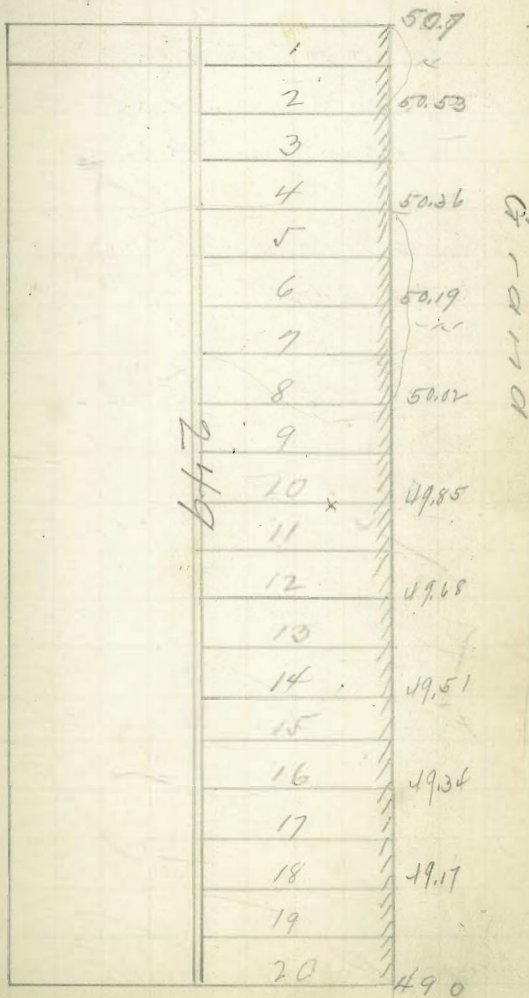 50.7
1
2 50.53
3
4 50.36
5
6 50.19
7
8 50.02
9
10 x 49.85
11
12 49.68
13
14 49.51
15
16 49.34
17
18 49.17
19
20 49 0
249
Grand